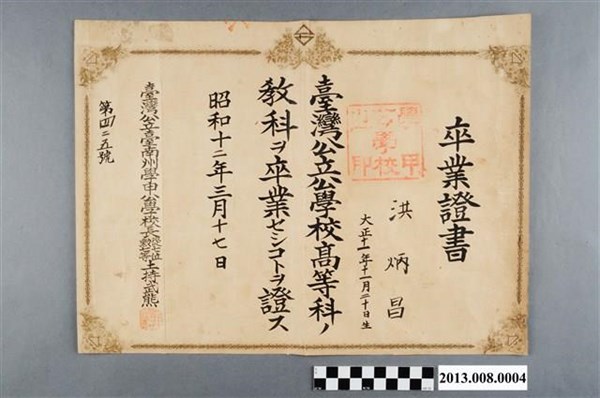 卒業證書
洪炳昌
大正十一年十一月二十日生
臺灣公立公學校高等科ノ
教科ヲ卒業セシコトヲ證ス
昭和十二年三月十七日
臺灣公立臺南州學甲公學校長
土持武熊
第四二五號
2013.008.0004